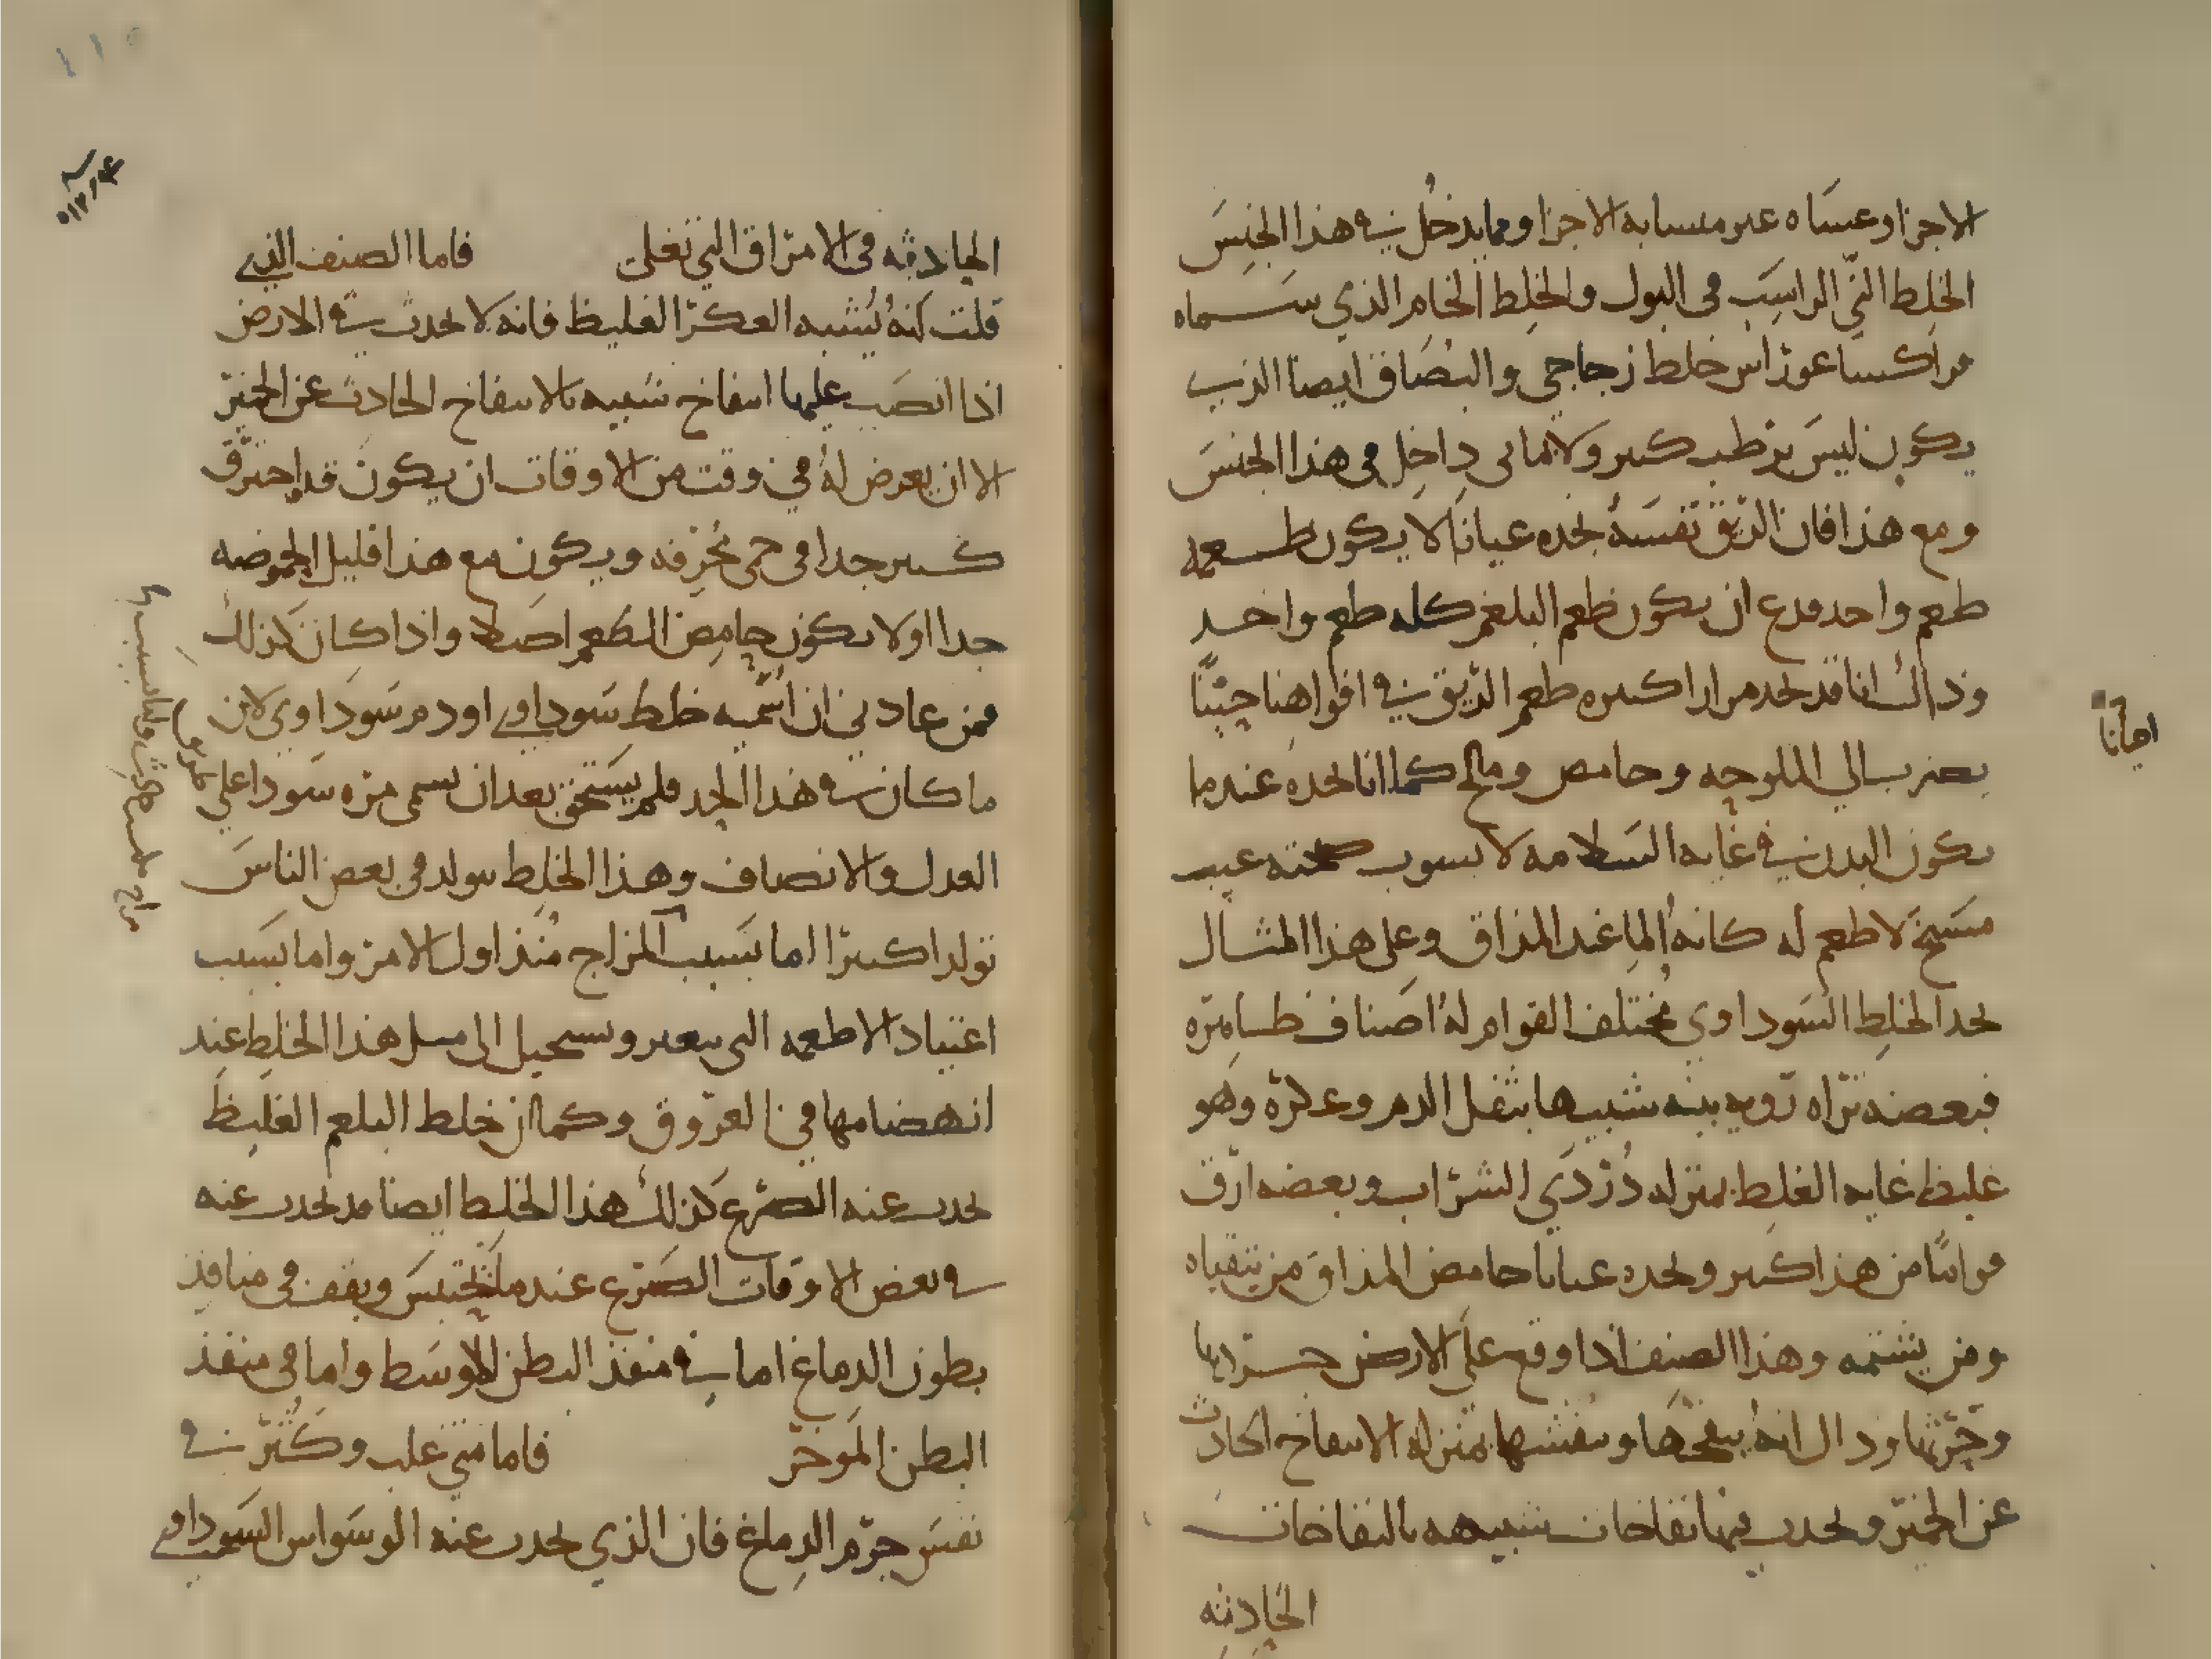 الاجزا وعساه غير متشابه الاجزا ومما يدخل في هذا الجنس
الخلط الني الراسب في البول والخلط الخام الذي سماه
فراكساغورس خلط زجاجي والبصاق ايضا الذي
يكون ليس برطب كثير ولا بمائي داخل في هذا الجنس
ومع هذا فان الريق نفسه نجده عيانا لا يكون طعمه
طعم واحد فدع ان يكون طعم البلغم كله طعم واحد
وذاك انا قد نجد مرارا كثيره طعم الريق في افواهنا حينا
يضرب الي الملوحه وحامض ومالح كما انا نجده عندما
يكون البدن في غايه السلامه لا يشوب صحته عيب
مسيخ لا طعم له كانه الما عند المذاق وعلي هذا المثال
نجد الخلط السوداوي مختلف القوام له اصناف
فبعضه تراه رويه بينه شبيها بثفل الدم وعكره وهو
غليظ غايه الغلظ بمنزله دردي الشراب وبعضه ارق
قواما من هذا كثير ونجده عيانا حامض المذاق من يتقياه
ومن يشتمه وهذا الصنف اذا وقع علي الارض
وذاك انه ينفخها وينفشها بمنزله الانتفاخ الحادث
عن الخمير ويحدث فيها نفاخات شبيهه بالنفاخات
الحادثه
احيانا
الحادثه في الامراق التي تغلي فاما الصنف الذي
قلت انه يشبه العكر الغليظ فانه لا يحدث في الارض
اذا انصب عليها انتفاخ شبيه بالانتفاخ الحادث عن الخمير
الا ان يعرض له في وقت من الاوقات ان يكون قد احترق
كثير جدا في حمي محرقه ويكون مع هذا قليل الحموضه
جدا او لا يكون حامض الطعم اصلا واذا كان كذلك
فمن عادتي ان اسميه خلط سوداوي او دم سوداوي لان
ما كان في هذا الحد فلم يستحق بعد ان يسمي مره سودا علي
العدل والانصاف وهذا الخلط يتولد في بعض الناس
تولدا كثيرا اما بسبب المزاج منذ اول الامر واما بسبب
اعتياد الاطعمه التي تتغير وتستحيل الي مثل هذا الخلط عند
انهضامها في العروق وكما ان خلط البلغم الغليظ
يحدث عنه الصرع كذلك هذا الخلط ايضا قد يحدث عنه
في بعض الاوقات الصرع عندما يحتبس ويقف في منافذ
بطون الدماغ اما في منفذ البطن الاوسط واما في منفذ
البطن الموخر فاما متي غلب وكثر في
نفس جرم الدماغ فان الذي يحدث عنه الوسواس السوداوي